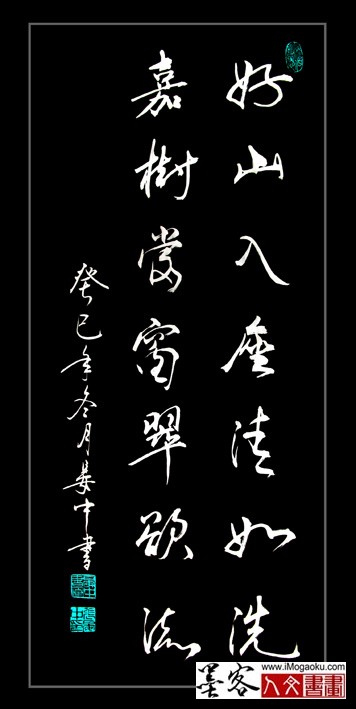 好山入座清如洗
嘉樹當窗翠欲流
癸巳年冬月中書
墨客
www.iMogaoku.com
人文書畫